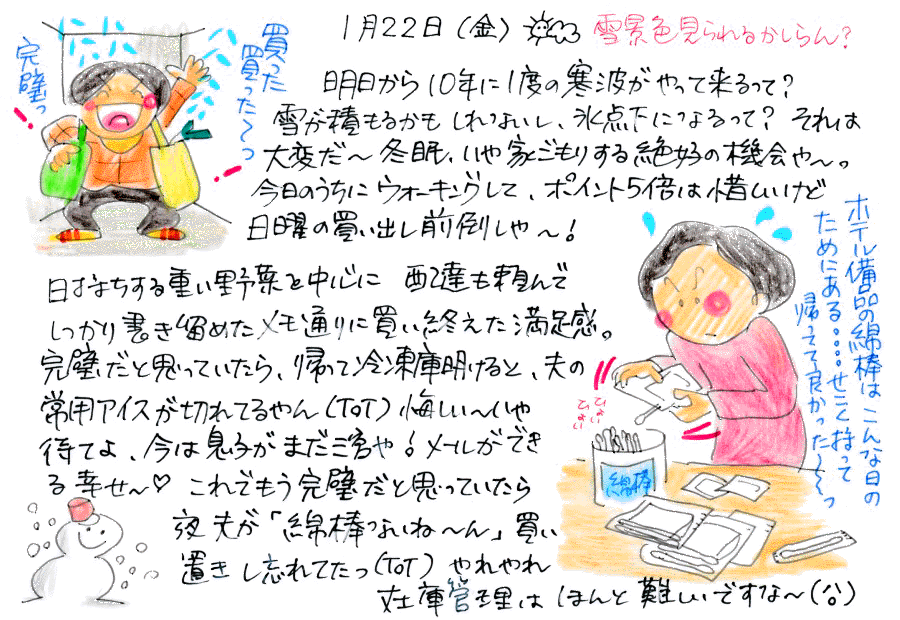 1月22日(金)
雪景色見られるかしらん?
買った
買った〜っ
完璧っ
明日から10年に1度の寒波がやって来るって?
雪が積もるかもしれないし、氷点下になるって? それは
大変だ〜 冬眠、いや家ごもりする絶好の機会や〜。
今日のうちにウォーキングして、ポイント5倍は惜しいけど
日曜の買い出し前倒しや〜!
日持ちする重い野菜を中心に 配達も頼んで
しっかり書き留めたメモ通りに買い終えた満足感。
完璧だと思っていたら、帰って冷凍庫明けると、夫の
常用アイスが切れてるやん(ToT) 悔しい〜いや
待てよ、今は息子がまだ三宮や!メールができ
る幸せ〜♡ これでもう完璧だと思っていたら
夜 夫が「綿棒ないね〜ん」買い
置きし忘れてたっ(ToT) やれやれ
在庫管理は ほんと難しいですな〜
ホテル備品の綿棒はこんな日の
ためにある・・・・せこく持って
帰ってて良かった〜っ
ひょい
ひょい
綿棒